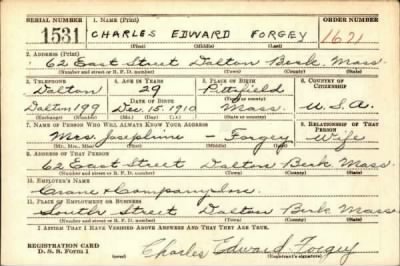 SERIAL NUMBER 1. NAME (Print) ORDER NUMBER
1531 CHARLES EDWARD FORGEY 1621
(First) (Middle) (Last)
2. ADDRESS (Print)
62 East Street Dalton Berk. Mass.
(Number and street or R. F. D. number) (Town) (County) (State)
3. TELEPHONE 4. AGE IN YEARS 5. PLACE OF BIRTH 6. COUNTRY OF CITIZENSHIP
Dalton 29 Pittsfield
DATE OF BIRTH (Town or county)
Dalton 199 Dec. 15. 1910 Mass. U.S.A.
(Exchange) (Number) (Mo.) (Day) (Yr.) (State or country)
7. NAME OF PERSON WHO WILL ALWAYS KNOW YOUR ADDRESS 8. RELATIONSHIP OF THAT PERSON
Mrs. Josephine — Forgey Wife
(Mr., Mrs., Miss) (First) (Middle) (Last)
9. ADDRESS OF THAT PERSON
62 East Street Dalton Berk. Mass.
(Number and street or R. F. D. number) (Town) (County) (State)
10. EMPLOYER'S NAME
Crane & Company Inc
11. PLACE OF EMPLOYMENT OR BUSINESS
South Street Dalton Berk Mass
(Number and street or R. F. D. number) (Town) (County) (State)
I AFFIRM THAT I HAVE VERIFIED ABOVE ANSWERS AND THAT THEY ARE TRUE.
REGISTRATION CARD
D. S. S. Form 1
Charles Edward Forgey
(Registrant's signature)